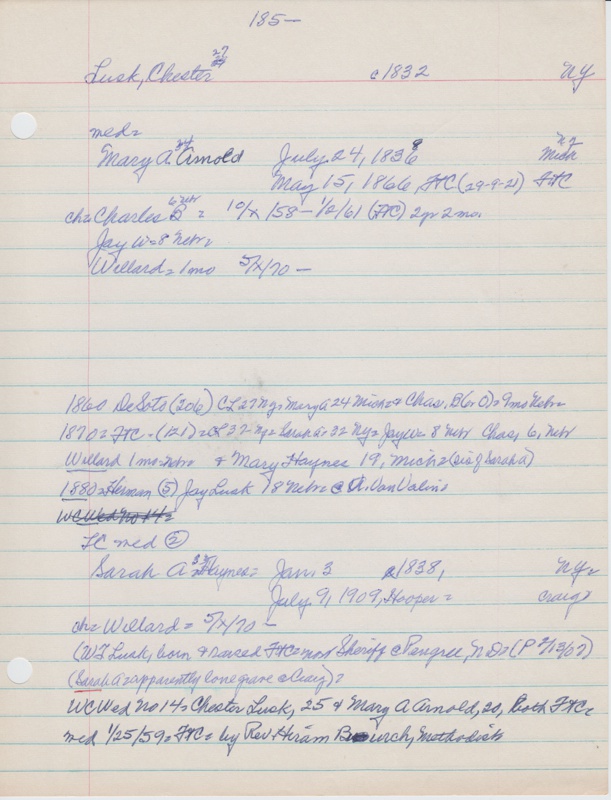 185—
27
Lusk, Chester c1832 NY
med=
Mary A. Arnold July 24, 1836 NY Mich
May 15, 1866, FtC (29-9-21) FtC
ch= Charles B = 10/x/58 — 1/2/61 (FtC) 2yr 2mo.
Jay W= 8 Nebr=
Willard= 1mo 5/x/70 —
1860 DeSoto (206) CL 27 NY= Mary A 24 Mich= & Chas. B (6:0)= 9mo Nebr=
1870= FtC - (121)= CL 37 NY= Sarah A= 32 NY= Jay W= 8 Nebr Chas, 6, Nebr
Willard 1 mo=Nebr & Mary Haynes 19, Mich= (sis of Sarah A)
1880= Herman (5) Jay Lusk 18 Nebr= @ A. Van Valin=
WC Wed No 14=
FC med (2)
Sarah A Haynes= Jan. 3 c1838, NY=
July 9, 1909, Hooper= Craig?
ch= Willard = 5/x/70 —
(WF Lusk, born & raised FtC= now Sheriff @ Pengree, ND= (P 2/13/07)
(Sarah A= apparently lone grave @ Craig)=
WC Wed No 14= Chester Lusk, 25 & Mary A Arnold, 20, both FtC=
med 1/25/59= FtC= by Rev. Hiram Burch, Methodist